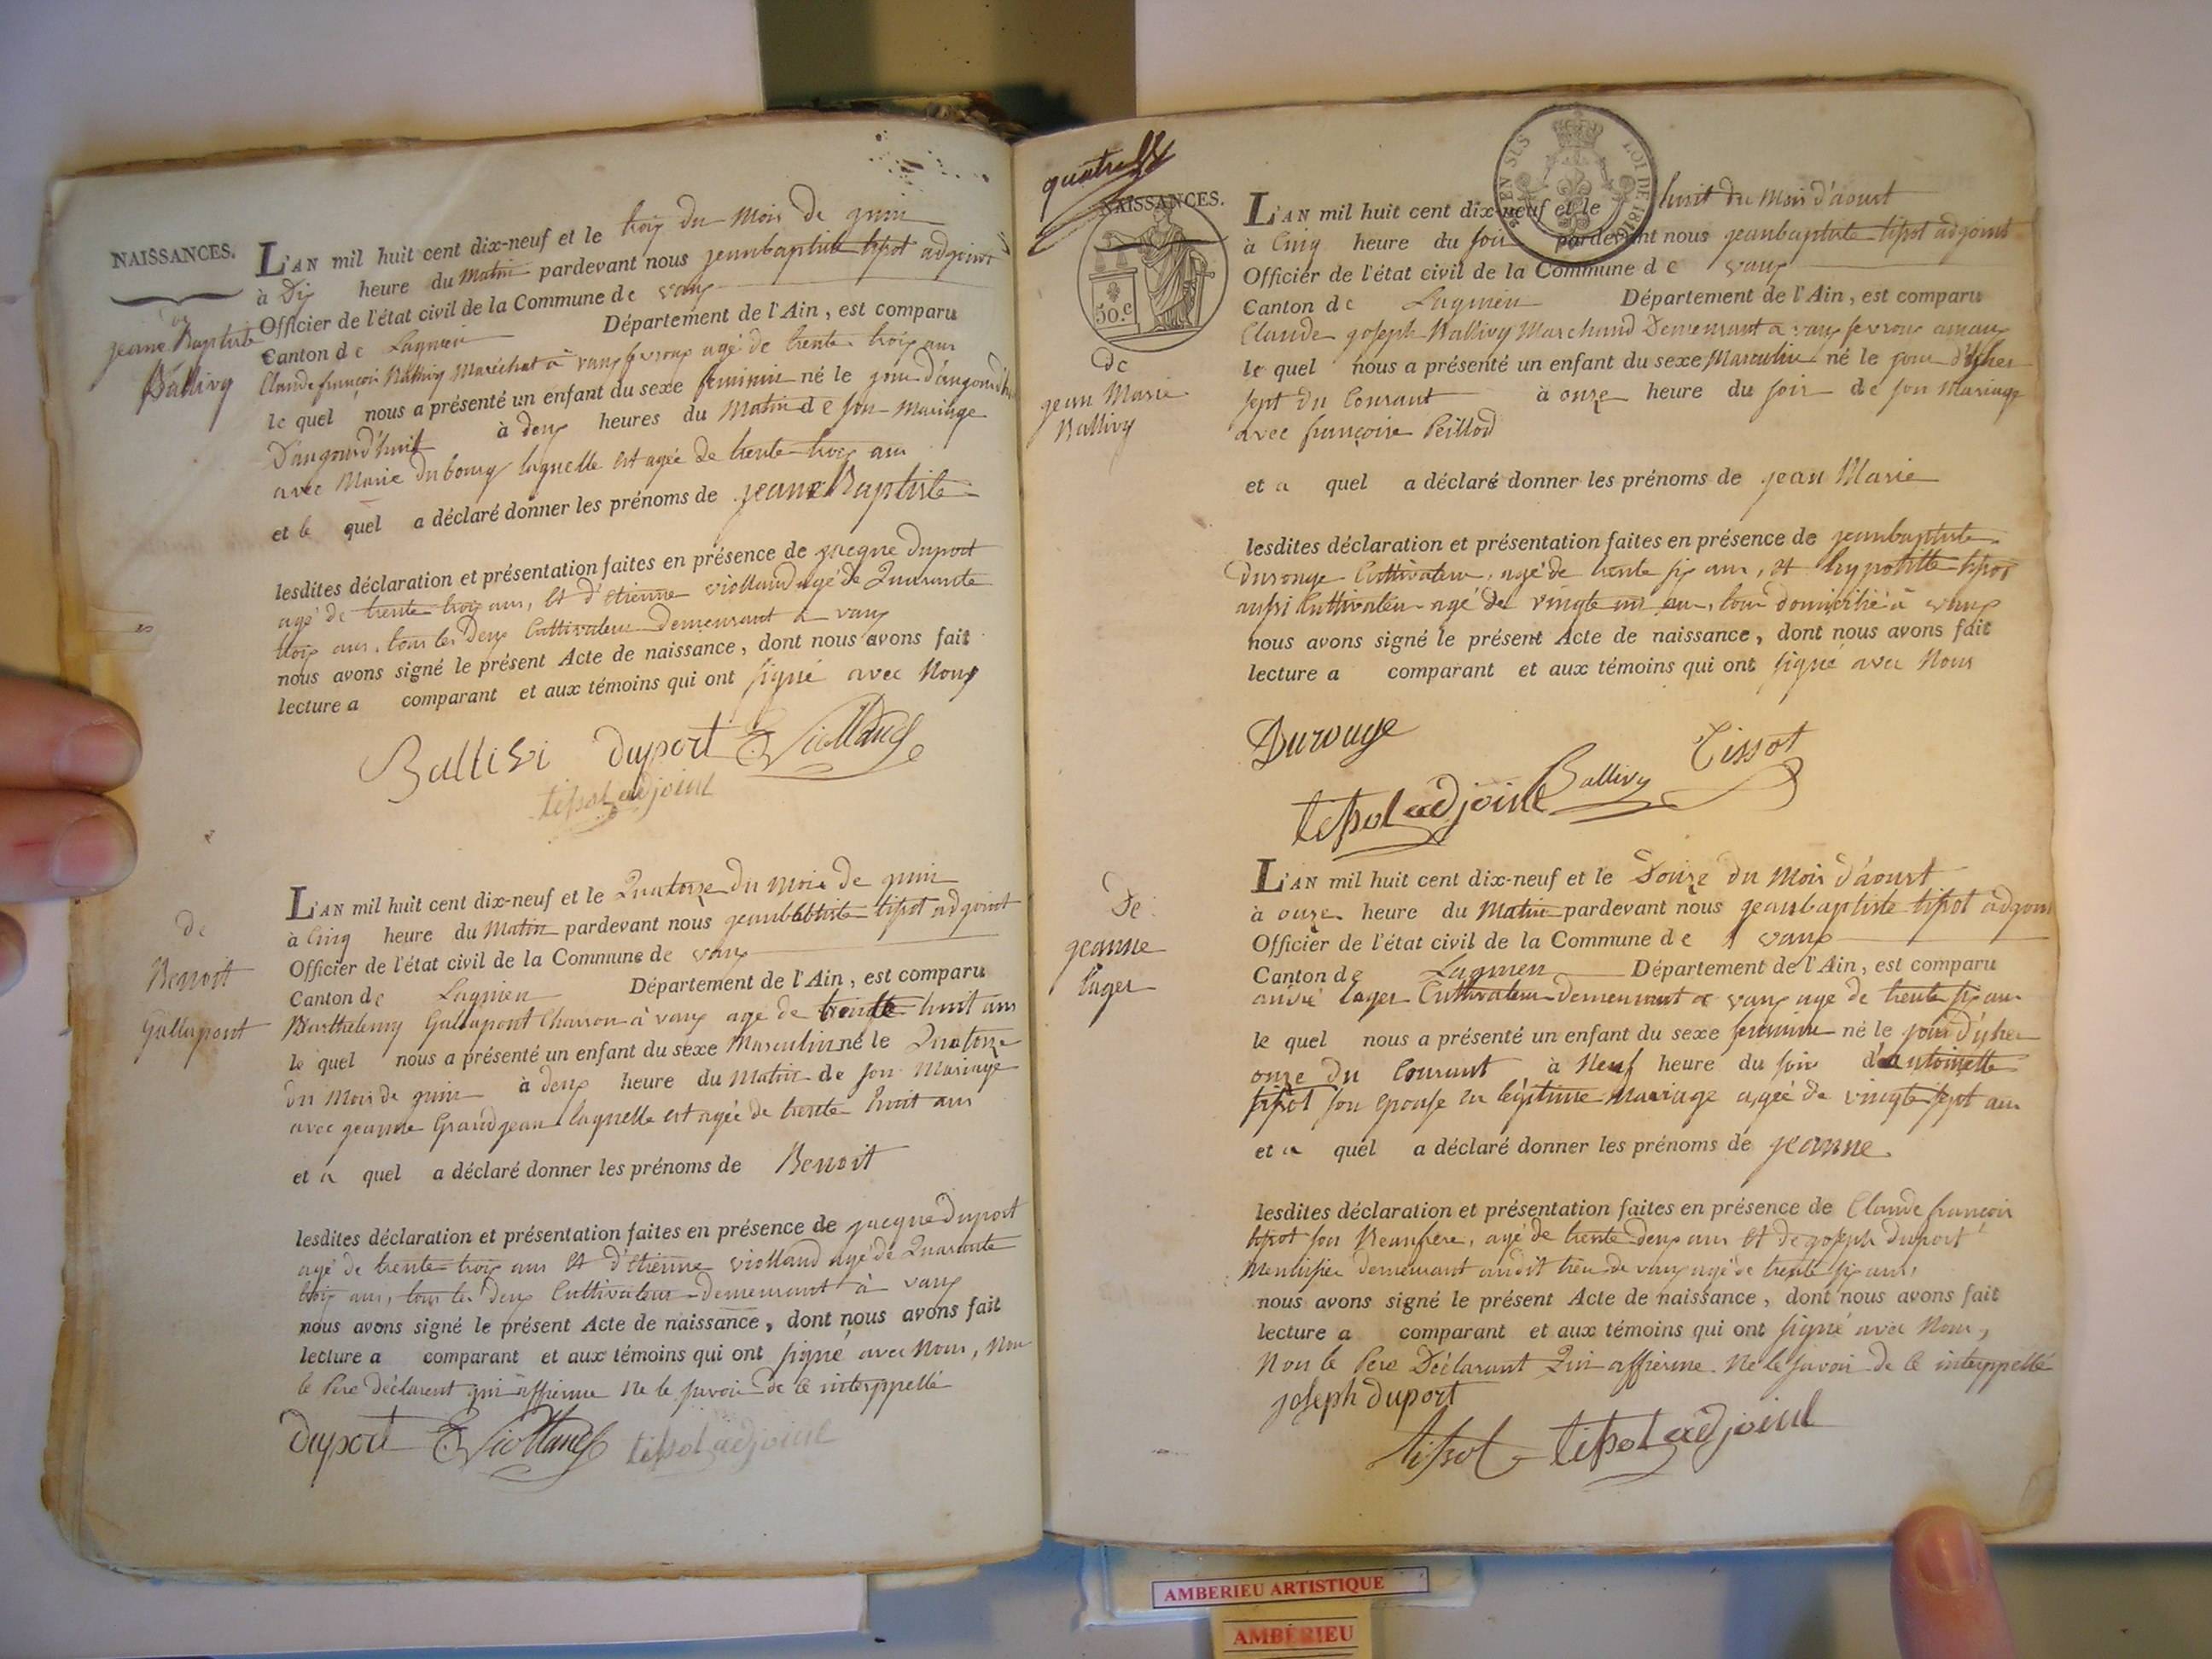 NAISSANCES.
L'AN mil huit cent dix-neuf et le trois du mois de juin
à Dix heure du Matin pardevant nous jeanbaptiste tissot adjoint
Officier de l'état civil de la Commune de vaux
Canton de Lagnieu Département de l'Ain, est comparu
Claude françois Ballivy Maréchal à vaux agé de trente trois ans
le quel nous a présenté un enfant du sexe feminin né le jour d'aujourdhui
D'aujourd'huit à deux heures du Matin de son Mariage
avec Marie dubourg laquelle est agée de trente trois ans
et le quel a déclaré donner les prénoms de jeanne Baptiste
lesdites déclaration et présentation faites en présence de jacque duport
agé de trente trois ans, et d'etienne viollaud agé de Quarante
trois ans, tous les deux Cultivateur demeurant à vaux
nous avons signé le présent Acte de naissance, dont nous avons fait
lecture a comparant et aux témoins qui ont signé avec Nous
de
jeanne Baptiste
Ballivy
Ballivi duport E Viollaud
tissot adjoint
L'AN mil huit cent dix-neuf et le Quatorze du mois de juin
à Cinq heure du Matin pardevant nous jeanbbtiste tissot adjoint
Officier de l'état civil de la Commune de vaux
Canton de Lagnieu Département de l'Ain, est comparu
Barthelemy Gallapont Charron à vaux agé de trente huit ans
le quel nous a présenté un enfant du sexe Masculin né le Quatorze
du Mois de juin à deux heure du Matin de son Mariage
avec jeanne Grandjean laquelle est agée de trente huit ans
et a quel a déclaré donner les prénoms de Benoit
lesdites déclaration et présentation faites en présence de jacque duport
agé de trente trois ans et d'etienne viollaud agé de Quarante
trois ans, tous les deux Cultivateur demeurant à vaux
nous avons signé le présent Acte de naissance, dont nous avons fait
lecture a comparant et aux témoins qui ont signé avec Nous, Non
le Pere déclarent qui affierme Ne le savoir de ce interppellé
de
Benoit
Gallapont
duport E Viollaud tissot adjoint
NAISSANCES.
50.c
EN SUS
LOI DE 181
L'AN mil huit cent dix-neuf et le huit du Mois d'aoust
à Cinq heure du soir pardevant nous jeanbaptiste tissot adjoint
Officier de l'état civil de la Commune de vaux
Canton de Lagnieu Département de l'Ain, est comparu
Claude joseph Ballivy Marchand Demeurant a vaux
le quel nous a présenté un enfant du sexe Masculin né le jour d'yher
sept du Courant à onze heure du soir de son Mariage
avec françoise Peillod
et a quel a déclaré donner les prénoms de jean Marie
lesdites déclaration et présentation faites en présence de jeanbaptiste
durouge Cultivateur, agé de trente six ans, et hypolitte tissot
aussi Cultivateur agé de vingte un an, tous domicilié à vaux
nous avons signé le présent Acte de naissance, dont nous avons fait
lecture a comparant et aux témoins qui ont signé avec Nous
de
jean Marie
Ballivy
Durouge Tissot
tissot adjoint Ballivy
L'AN mil huit cent dix-neuf et le Douze du Mois d'aoust
à onze heure du Matin pardevant nous jeanbaptiste tissot adjoint
Officier de l'état civil de la Commune de vaux
Canton de Lagnieu Département de l'Ain, est comparu
andré Cultivateur demeurant a vaux agé de trente six ans
le quel nous a présenté un enfant du sexe feminin né le jour d'yher
onze du Courant à Neuf heure du soir d'antoinette
tissot son epouse en légitime mariage agée de vingte sept ans
et a quel a déclaré donner les prénoms de jeanne
lesdites déclaration et présentation faites en présence de Claude françois
tissot son Beaufrere, agé de trente deux ans et de joseph duport
Menuisier demeurant audit lieu de vaux agé de trente six ans,
nous avons signé le présent Acte de naissance, dont nous avons fait
lecture a comparant et aux témoins qui ont signé avec Nous,
Non le Pere Déclarant Qui affierme Ne le savoir de ce interppellé
De
jeanne
joseph duport
tissot tissot adjoint
AMBERIEU ARTISTIQUE
AMBERIEU